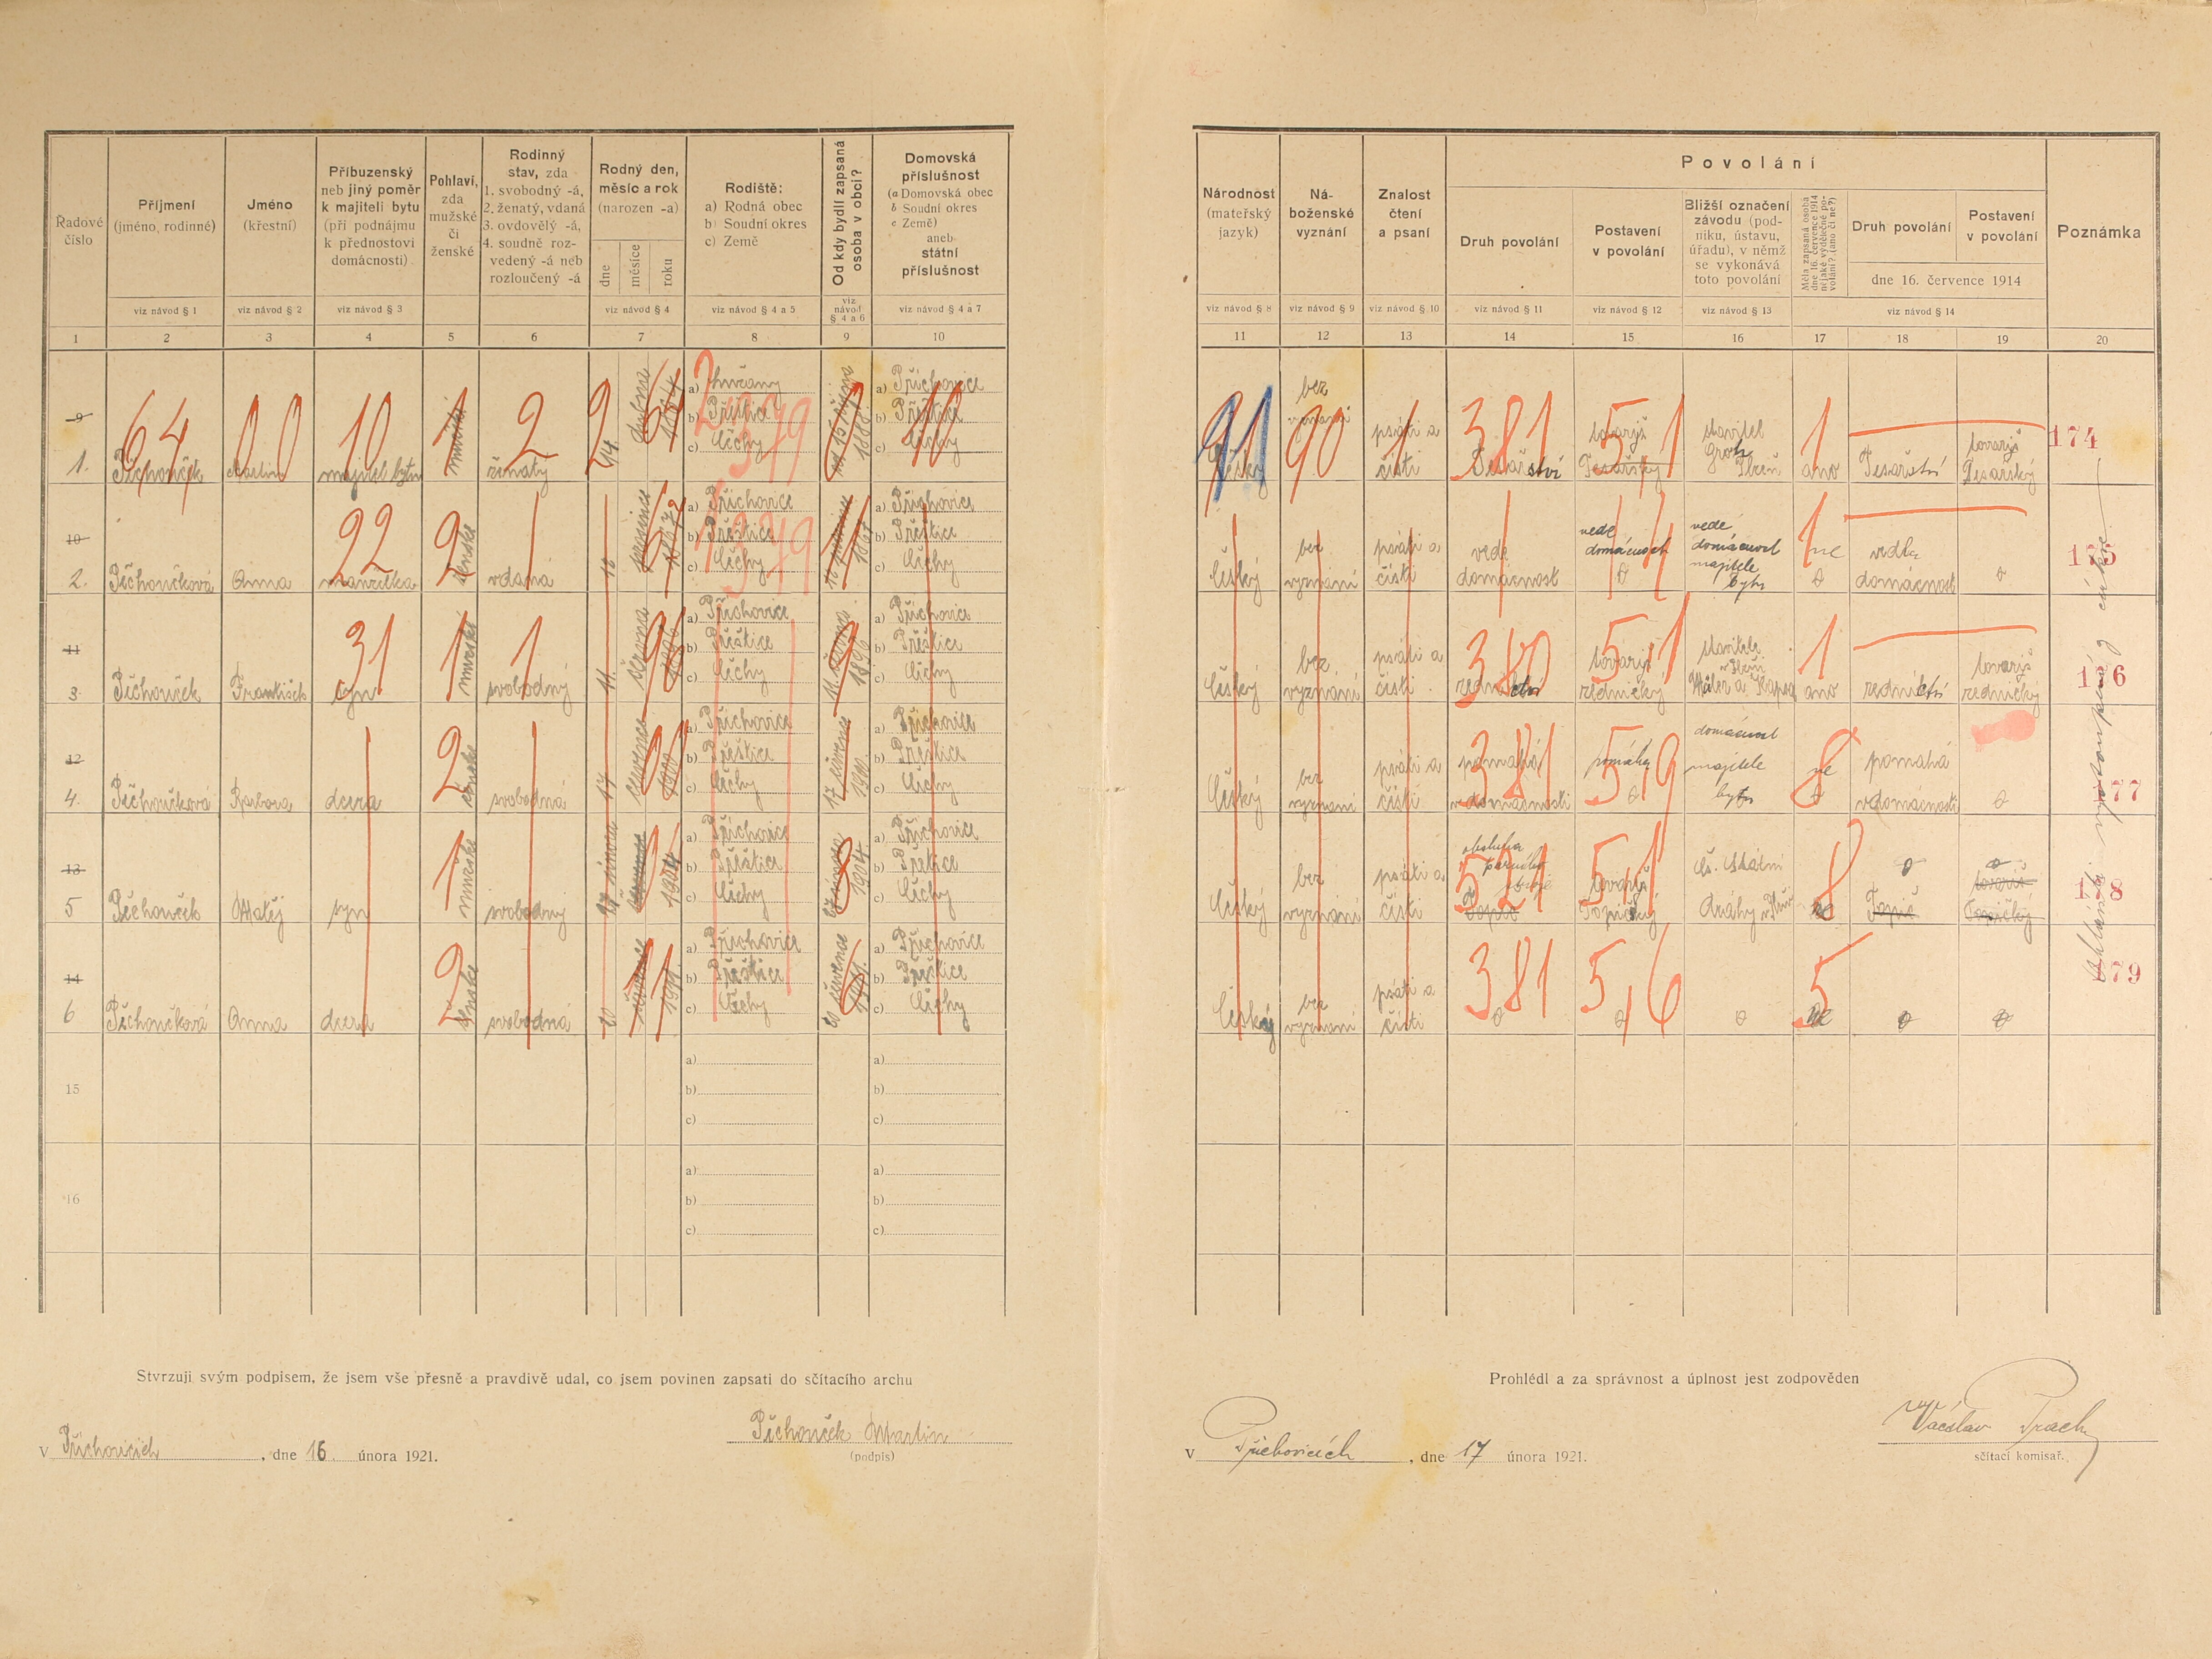 Řadové číslo
Příjmení
(jméno, rodinné)
viz návod § 1
Jméno
(křestní)
viz návod § 2
Příbuzenský
neb jiný poměr
k majiteli bytu
(při podnájmu
k přednostovi
domácnosti)
viz návod § 3
Pohlaví,
zda
mužské
či
ženské
Rodinný
stav, zda
1. svobodný -á,
2. ženatý, vdaná
3. ovdovělý -á,
4. soudně roz-
vedený -á neb
rozloučený -á
Rodný den,
měsíc a rok
(narozen -a)
dne
měsíce
roku
viz návod § 4
Rodiště:
a) Rodná obec
b) Soudní okres
c) Země
viz návod § 4 a 5
Od kdy bydlí zapsaná
osoba v obci?
viz
návod
§ 4 a 6
Domovská
příslušnost
(a Domovská obec
b Soudní okres
c Země)
aneb
státní
příslušnost
viz návod § 4 a 7
1 2 3 4 5 6 7 8 9 10
Národnost
(mateřský
jazyk)
viz návod § 8
Ná-
boženské
vyznání
viz návod § 9
Znalost
čtení
a psaní
viz návod § 10
Povolání
Druh povolání
viz návod § 11
Postavení
v povolání
viz návod § 12
Bližší označení
závodu (pod-
niku, ústavu,
úřadu), v němž
se vykonává
toto povolání
viz návod § 13
Měla zapsaná osoba
dne 16. července 1914
nějaké výdělečné po-
volání? (ano či ne?)
Druh povolání
Postavení
v povolání
dne 16. července 1914
viz návod § 14
Poznámka
11 12 13 14 15 16 17 18 19 20
9
1.
64 00 10 1 2 2 64
Pěchouček Martin majitel bytu mužské ženatý 14 dubna 1864
a) Lhučany
b) Přeštice
c) Čechy
a) Příchovice
b) Přeštice
c) Čechy
91 90 1 381 5,1 1
český bez vyznání psáti a čísti Tesařství tovaryš Tesařský stavitel Plzeň ano Tesařství tovaryš Tesařský
174
10
2.
22 2 1
Pěchoučková Anna manželka ženské vdaná 10
a) Příchovice
b) Přeštice
c) Čechy
a) Příchovice
b) Přeštice
c) Čechy
český bez vyznání psáti a čísti vede domácnost vede domácnost vede domácnost majitele bytu ne vedla domácnost
11
3.
31 1 1
Pěchouček František syn mužské svobodný 11. června 1896
a) Příchovice
b) Přeštice
c) Čechy
11 června 1896
a) Příchovice
b) Přeštice
c) Čechy
český bez vyznání psáti a čísti zednictví tovaryš zednický stavitele ano zednictví tovaryš zednický
380 5,1 1
176
12
4.
Pěchoučková Barbora dcera ženské svobodná 17 července 1900
a) Příchovice
b) Přeštice
c) Čechy
17 července 1900
a) Příchovice
b) Přeštice
c) Čechy
český bez vyznání psáti a čísti pomáhá v domácnosti pomáhá domácnost majitele bytu ne pomáhá v domácnosti
381 5,9 8
177
13
5
Pěchouček Matěj syn mužské svobodný 27 února 1904
a) Příchovice
b) Přeštice
c) Čechy
27 února 1904
a) Příchovice
b) Přeštice
c) Čechy
český bez vyznání psáti a čísti obsluha parního stroje Topič tovaryš Topičský čs. státní dráhy v Plzni ne Topič tovaryš Topičský
521 5,1 8
178
14
6
Pěchoučková Anna dcera ženské svobodná 20 července 1911
a) Příchovice
b) Přeštice
c) Čechy
20 července 1911
a) Příchovice
b) Přeštice
c) Čechy
český bez vyznání psáti a čísti ne
381 5,6 5
179
15
a)
b)
c)
a)
b)
c)
16
a)
b)
c)
a)
b)
c)
Stvrzuji svým podpisem, že jsem vše přesně a pravdivě udal, co jsem povinen zapsati do sčítacího archu
V Příchovicích, dne 16 února 1921.
Pěchouček Martin
(podpis)
Prohlédl a za správnost a úplnost jest zodpověden
V Příchovicích, dne 17 února 1921.
Václav
sčítací komisař.